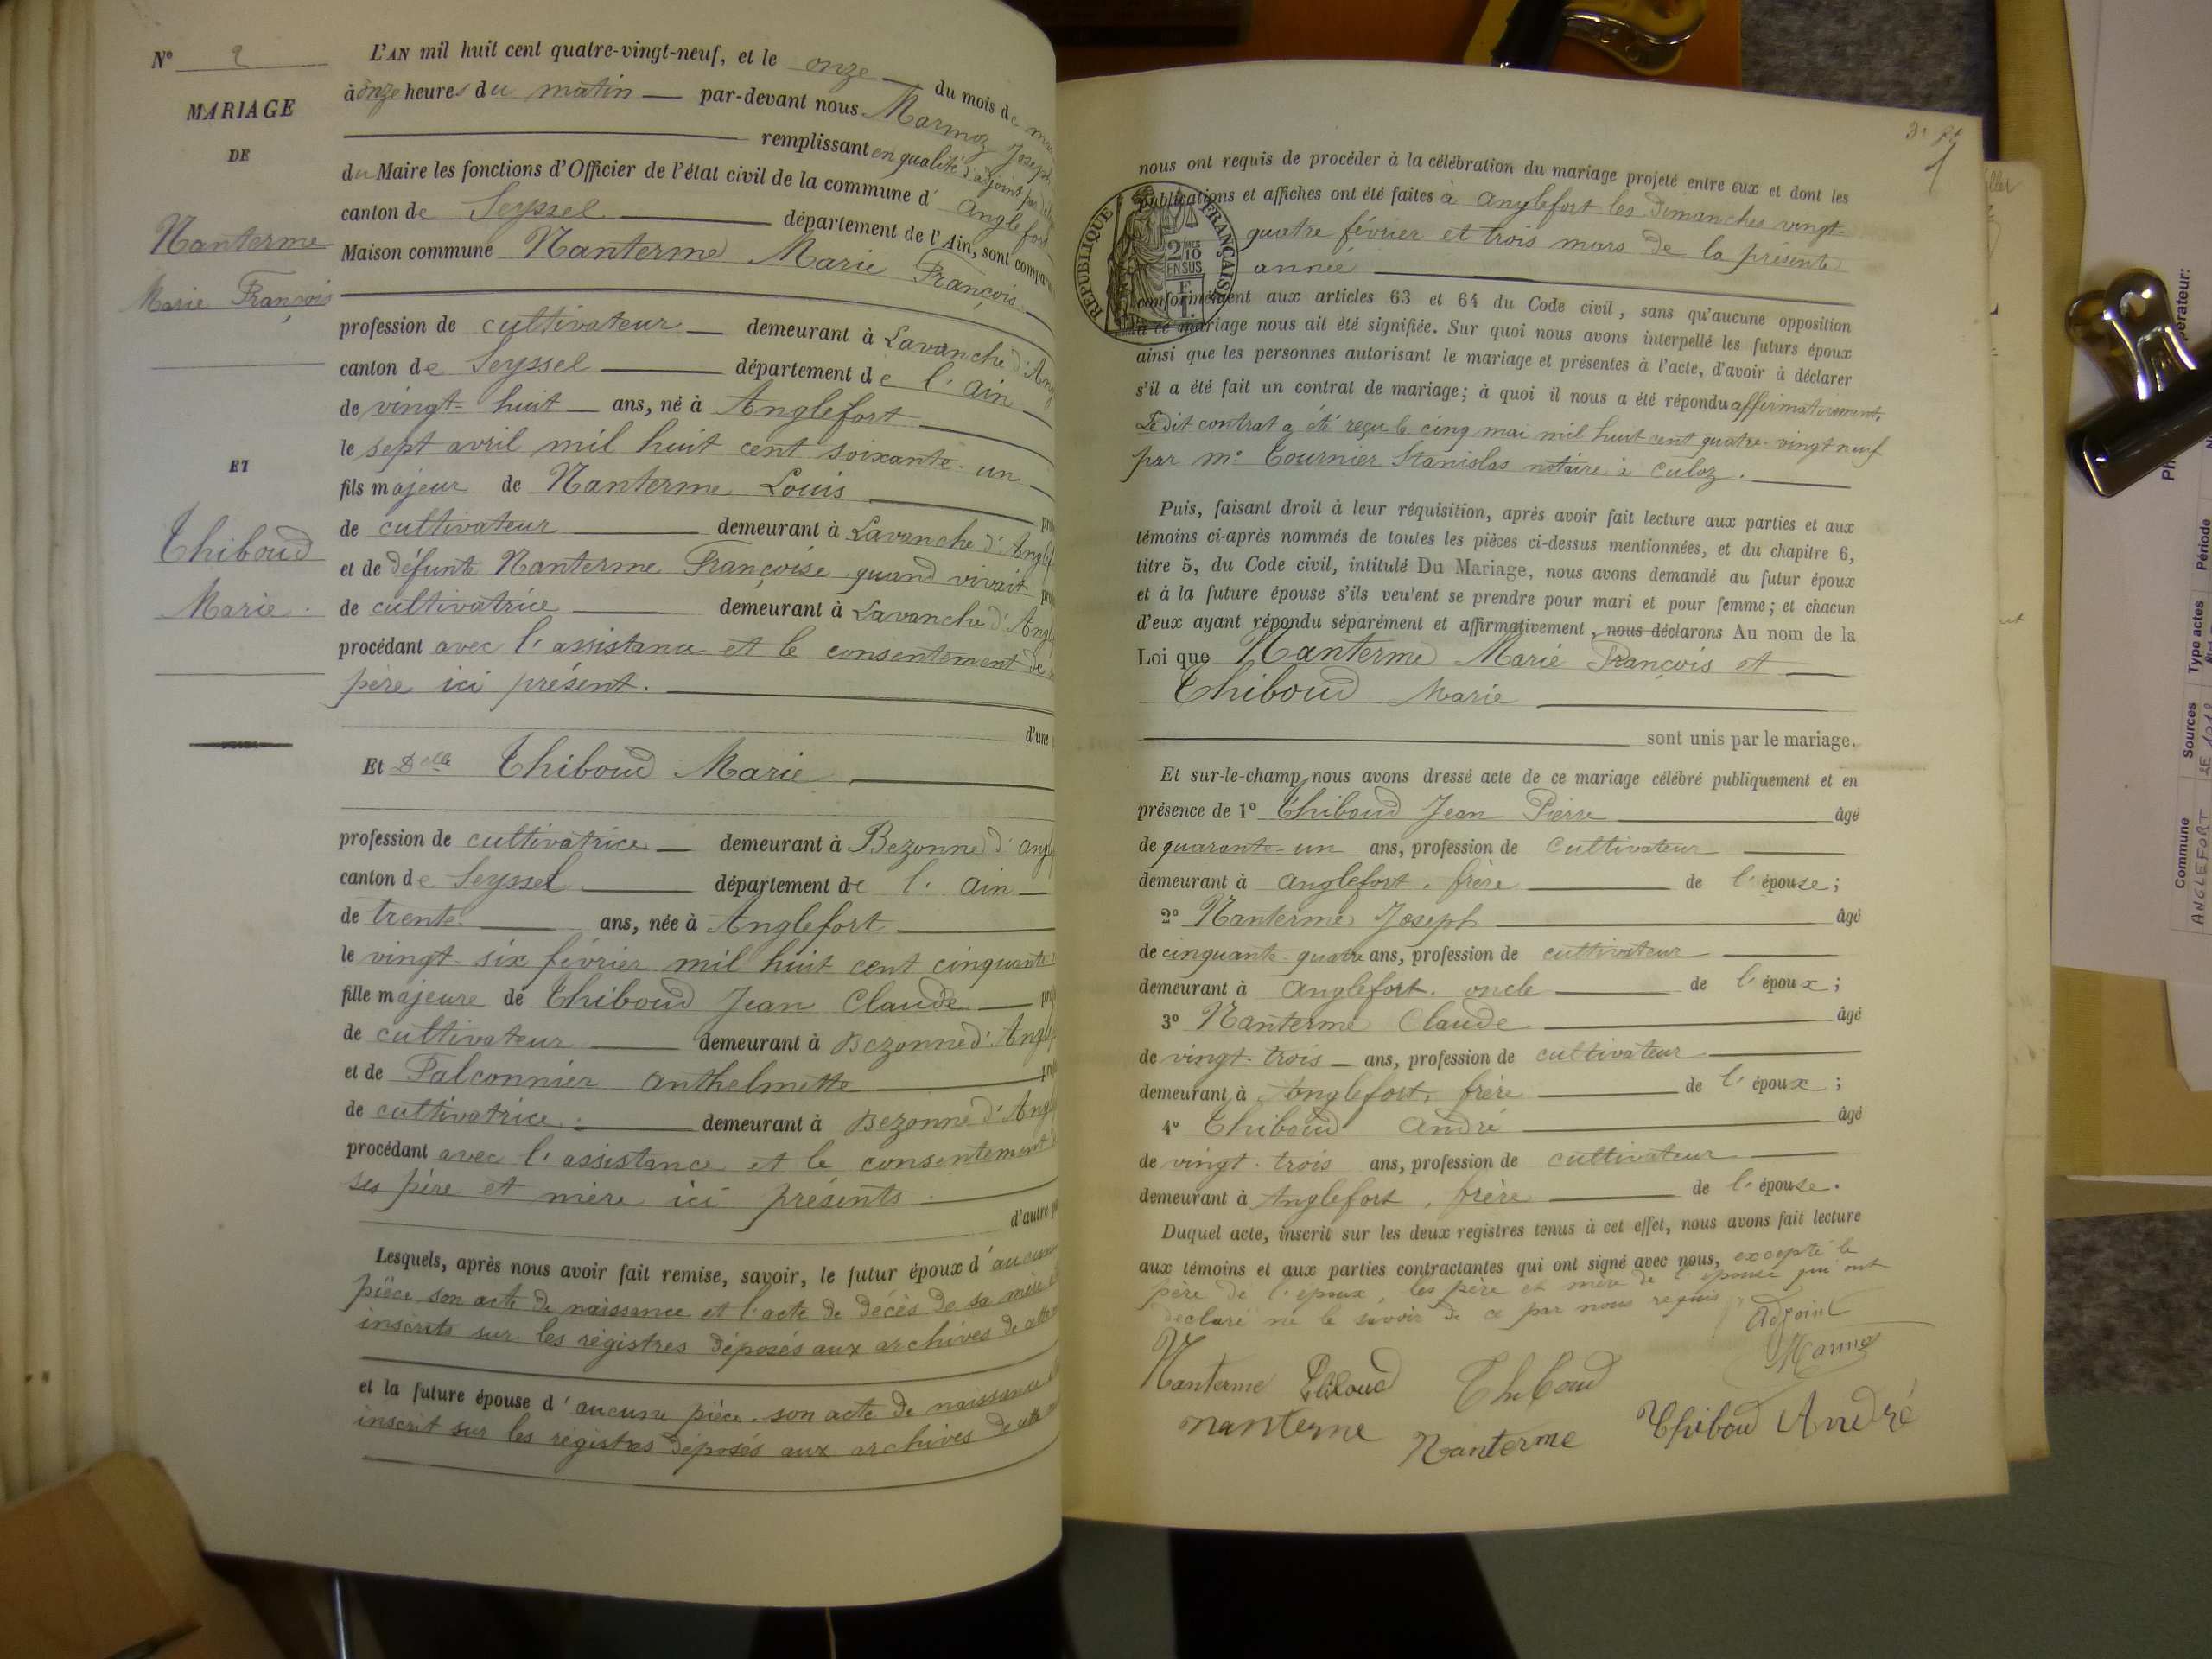 N° 2
MARIAGE
DE
Nanterme
Marie François
ET
Thiboud
Marie.
L'AN mil huit cent quatre-vingt-neuf, et le onze du mois de
à onze heures du matin par-devant nous Marmoz Joseph
remplissant en qualité d'adjoint par
du Maire les fonctions d'Officier de l'état civil de la commune d'Anglefort
canton de Seyssel département de l'Ain, sont
Maison commune Nanterme Marie François
profession de cultivateur demeurant à Lavanche d'
canton de Seyssel département de l'Ain
de vingt-huit ans, né à Anglefort
le sept avril mil huit cent soixante-un
fils majeur de Nanterme Louis
de cultivateur demeurant à Lavanche d'
et de défunte Nanterme Françoise quand vivait
de cultivatrice demeurant à Lavanche d'
procédant avec l'assistance et le consentement de
père ici présent.
d'une
Et Delle Thiboud Marie
profession de cultivatrice demeurant à Bezonne d'
canton de Seyssel département de l'Ain
de trente ans, née à Anglefort
le vingt-six février mil huit cent cinquante
fille majeure de Thiboud Jean Claude
de cultivateur demeurant à Bezonne d'
et de Falconnier Anthelmette
de cultivatrice demeurant à Bezonne d'
procédant avec l'assistance et le consentement
ses père et mère ici présents.
d'autre
Lesquels, après nous avoir fait remise, savoir, le futur époux d'aucune
pièce son acte de naissance et l'acte de décès de sa mère
inscrits sur les régistres déposés aux archives de cette
et la future épouse d'aucune pièce. son acte de naissance
inscrit sur les régistres déposés aux archives de cette
nous ont requis de procéder à la célébration du mariage projeté entre eux et dont les
publications et affiches ont été faites à Anglefort les dimanches vingt-
quatre février et trois mars de la présente
année
conformément aux articles 63 et 64 du Code civil, sans qu'aucune opposition
à ce mariage nous ait été signifiée. Sur quoi nous avons interpellé les futurs époux
ainsi que les personnes autorisant le mariage et présentes à l'acte, d'avoir à déclarer
s'il a été fait un contrat de mariage; à quoi il nous a été répondu affirmativement.
Ledit contrat a été reçu le cinq mai mil huit cent quatre-vingt neuf
par me Tournier Stanislas notaire à Culoz.
RÉPUBLIQUE FRANÇAISE
2/10 EN SUS
Puis, faisant droit à leur réquisition, après avoir fait lecture aux parties et aux
témoins ci-après nommés de toutes les pièces ci-dessus mentionnées, et du chapitre 6,
titre 5, du Code civil, intitulé Du Mariage, nous avons demandé au futur époux
et à la future épouse s'ils veulent se prendre pour mari et pour femme; et chacun
d'eux ayant répondu séparément et affirmativement, nous déclarons Au nom de la
Loi que Nanterme Marie François et
Thiboud Marie
sont unis par le mariage.
Et sur-le-champ nous avons dressé acte de ce mariage célébré publiquement et en
présence de 1° Thiboud Jean Pierre âgé
de quarante-un ans, profession de cultivateur
demeurant à Anglefort, frère de l'épouse;
2° Nanterme Joseph âgé
de cinquante-quatre ans, profession de cultivateur
demeurant à Anglefort. oncle de l'époux;
3° Nanterme Claude âgé
de vingt-trois ans, profession de cultivateur
demeurant à Anglefort, frère de l'époux;
4° Thiboud André âgé
de vingt-trois ans, profession de cultivateur
demeurant à Anglefort, frère de l'épouse.
Duquel acte, inscrit sur les deux registres tenus à cet effet, nous avons fait lecture
aux témoins et aux parties contractantes qui ont signé avec nous, excepté le
père de l'époux, les père et mère de l'épouse qui ont
déclaré ne le savoir de ce par nous requis
Adjoint
Marmoz
Nanterme Thiboud Thiboud
nanterme Nanterme Thiboud André
Commune Sources Type actes Période
ANGLEFORT